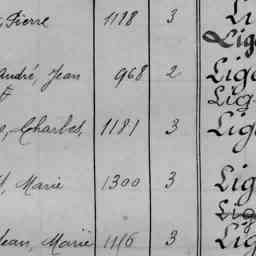 Pierre 1188 3 Li
Lig
André, Jean 968 2 Lig
Lig
Charles, 1181 3 Lig
Marie 1300 3 Lig
Lig
Jean, Marie 1116 3 Lig